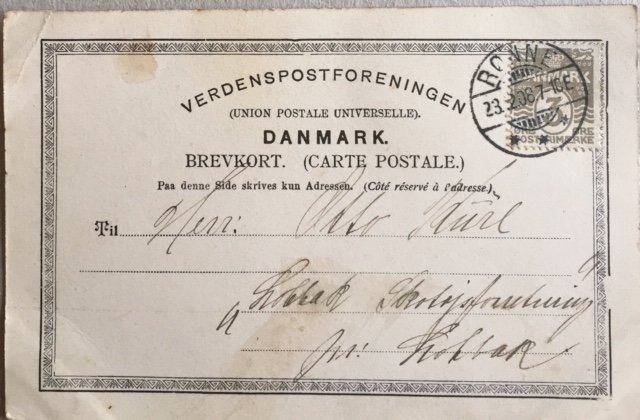 VERDENSPOSTFORENINGEN
(UNION POSTALE UNIVERSELLE).
DANMARK.
BREVKORT. (CARTE POSTALE.)
Paa denne Side skrives kun Adressen. (Côté réservé à l'adresse.)
RØNNE
3
ØRE ØRE
POSTFRIMÆRKE
Til Herr: Otto
"Lobbæk Skotøjsforretning"
pr: Lobbæk